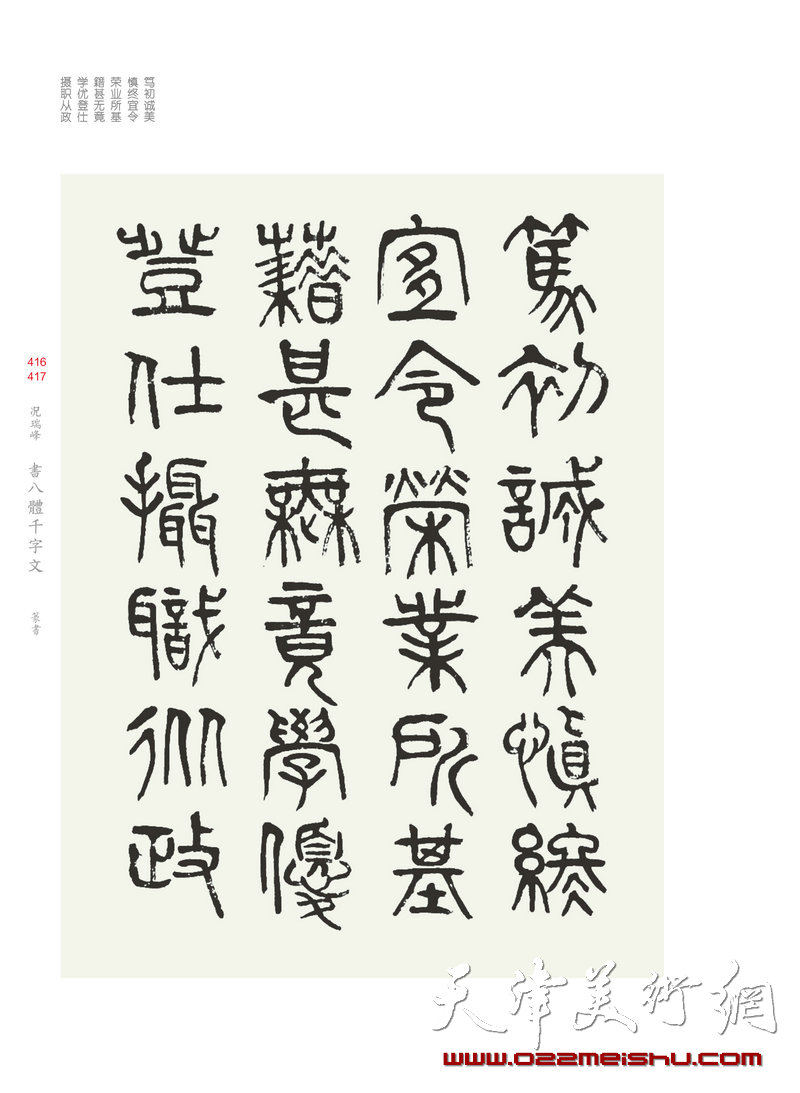 笃初诚美
慎终宜令
荣业所基
籍甚无竟
学优登仕
摄职从政
篤初誠美慎終
宜令榮業所基
藉甚無竟學優
登仕攝職從政
416
417
况瑞峰
書八體千字文
篆书
天津美術網
www.022meishu.com